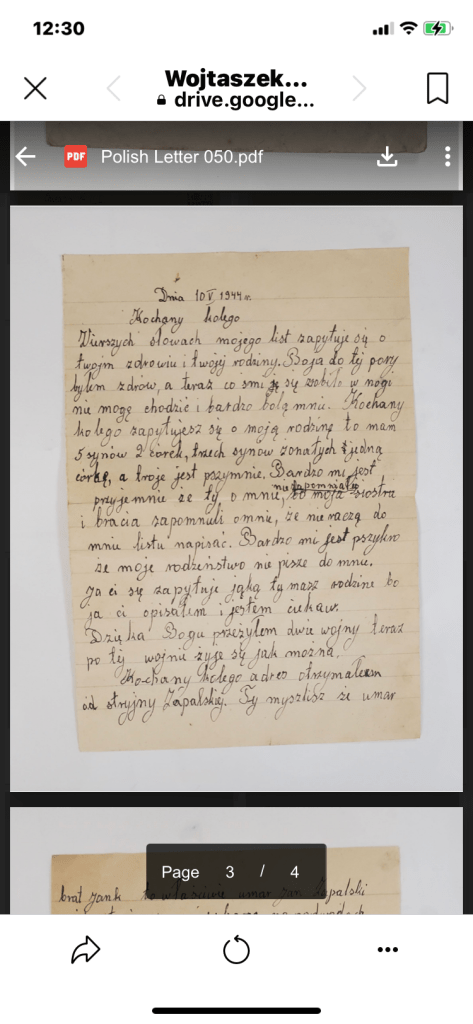 12:30
Wojtaszek...
drive.google...
PDF Polish Letter 050.pdf
Dnia 10 V 1944 r.
Kochany kolego
Wierszych słowach mojego list zapytuje się o
twojm zdrowiu i twojej rodziny. Boja do tej pory
byłem zdrow, a teraz co śmi się zobiło w nogi
nie mogę chodzić i bardzo bolą mnie. Kochany
kolego zapytujesz się o moją rodzinę to mam
5 synów 2 córek, trzech synów żonatych i jedną
córkę, a troje jest pszymnie. Bardzo mi jest
nie zapomnałeś
przyjemnie że ty o mnie, bo moja siostra
i bracia zapomnuli omnie, że nie raczą do
mnie listu napisać. Bardzo mi jest pszykro
że moje rodzeństwo nie pisze do mnie.
Ja ci się zapytuje jąką ty masz rodzine bo
ja ci opisałem i jestem ciekaw.
Dzięka Bogu przeżyłem dwie wojny teraz
po tej wojnie żyje się jak można.
Kochany kolego adres otrzymałem
od stryjny Zapalskiej. Ty myszlisz że umar
brat Janek to właściwie umar Jan Zapalski
Page 3 / 4